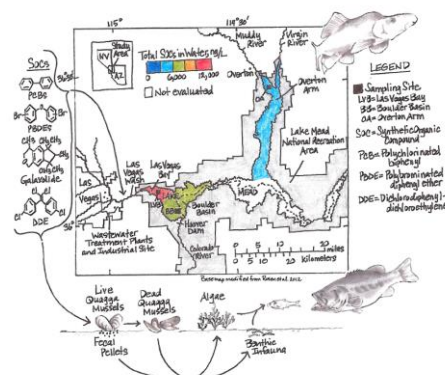 115°
119°30'
Muddy River
Virgin River
Study Area
NV
AZ
Total SOCs in Water, ng/L
0 6,000 12,000
Not evaluated
Overton
OA
Overton Arm
SOCs
PCBs
Br Br
PBDEs
Galaxolide
Cl Cl
Cl Cl
DDE
36°
Las Vegas
Las Vegas Wash
Las Vegas Bay
LVB
BB
Boulder Basin
Hoover Dam
Colorado River
Lake Mead National Recreation Area
Wastewater Treatment Plants and Industrial Site
0 5 10 20 miles
20 kilometers
Base map modified from Rosen et al. 2012
LEGEND
Sampling Site
LVB = Las Vegas Bay
BB = Boulder Basin
OA = Overton Arm
SOC = Synthetic Organic Compound
PCB = Polychlorinated biphenyl
PBDE = Polybrominated diphenyl ether
DDE = Dichlorodiphenyl-dichloroethylene
Live Quagga Mussels
Dead Quagga Mussels
Algae
Fecal Pellets
Benthic Infauna